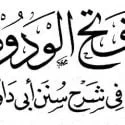 فتح الودو
في شرح سنن أبي داو